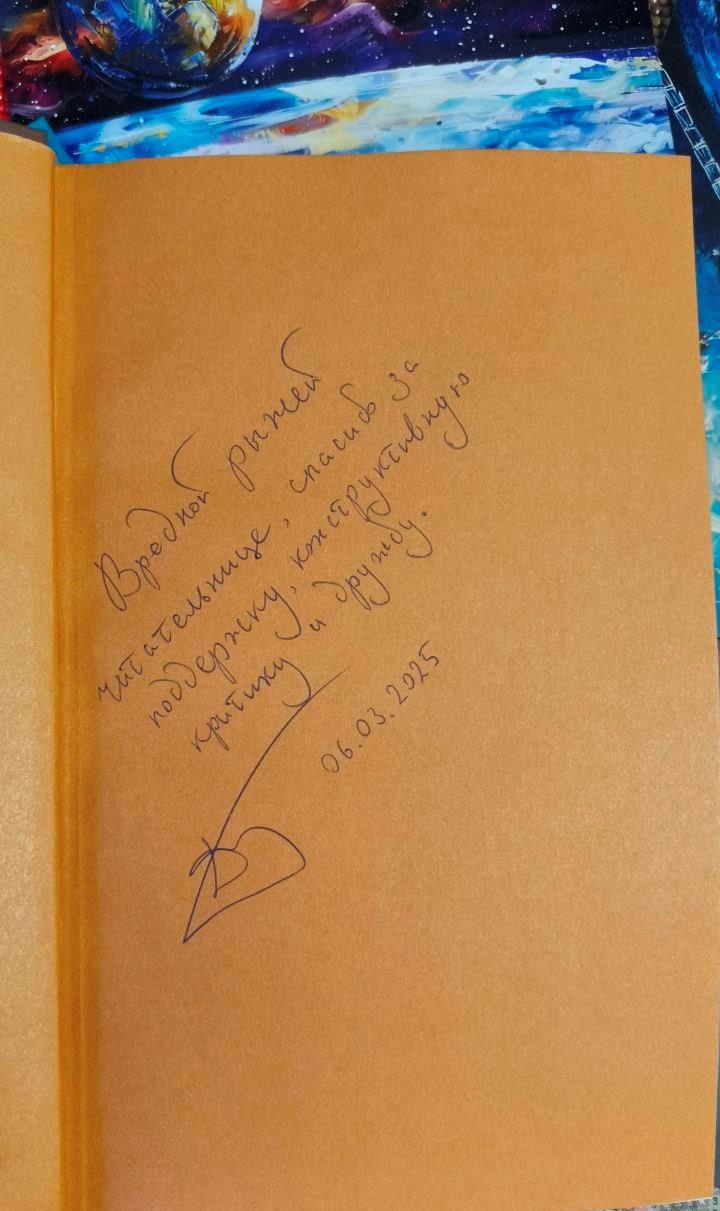 Вредной рыжей
читательнице, спасибо за
поддержку, конструктивную
критику и дружбу.
06.03.2025